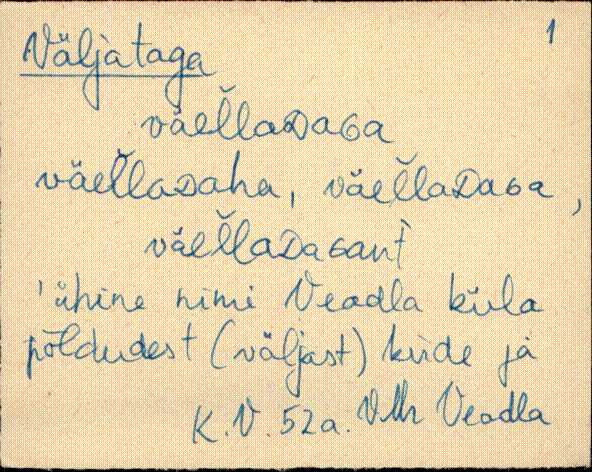 1
Väljataga
väel̆l̆aᴅaɢa
väel̆l̆aᴅaha, väel̆l̆aᴅaɢa,
väel̆l̆aᴅaɢant
'ühine nimi Veadla küla
põldudest (väljast) kuide ja
K.V. 52a. VMr Veadla